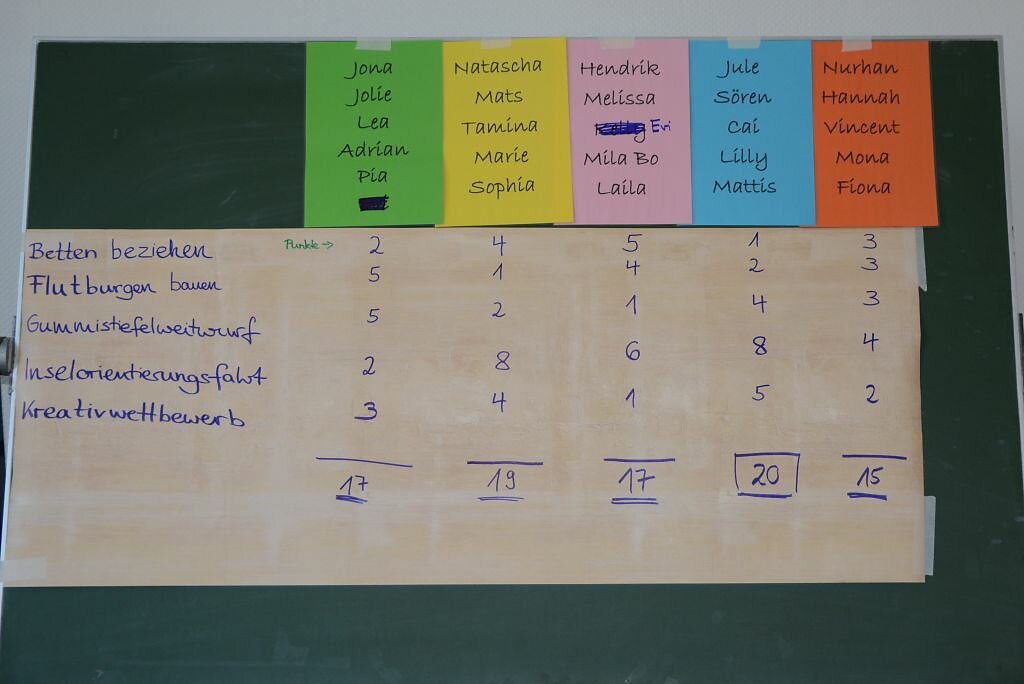 Jona
Jolie
Lea
Adrian
Pia
Natascha
Mats
Tamina
Marie
Sophia
Hendrik
Melissa
Evi
Mila Bo
Laila
Jule
Sören
Cai
Lilly
Mattis
Nurhan
Hannah
Vincent
Mona
Fiona
Betten beziehen Punkte → 2 4 5 1 3
Flutburgen bauen 5 1 4 2 3
Gummistiefelweitwurf 5 2 1 4 3
Inselorientierungsfahrt 2 8 6 8 4
Kreativwettbewerb 3 4 1 5 2
17 19 17 20 15